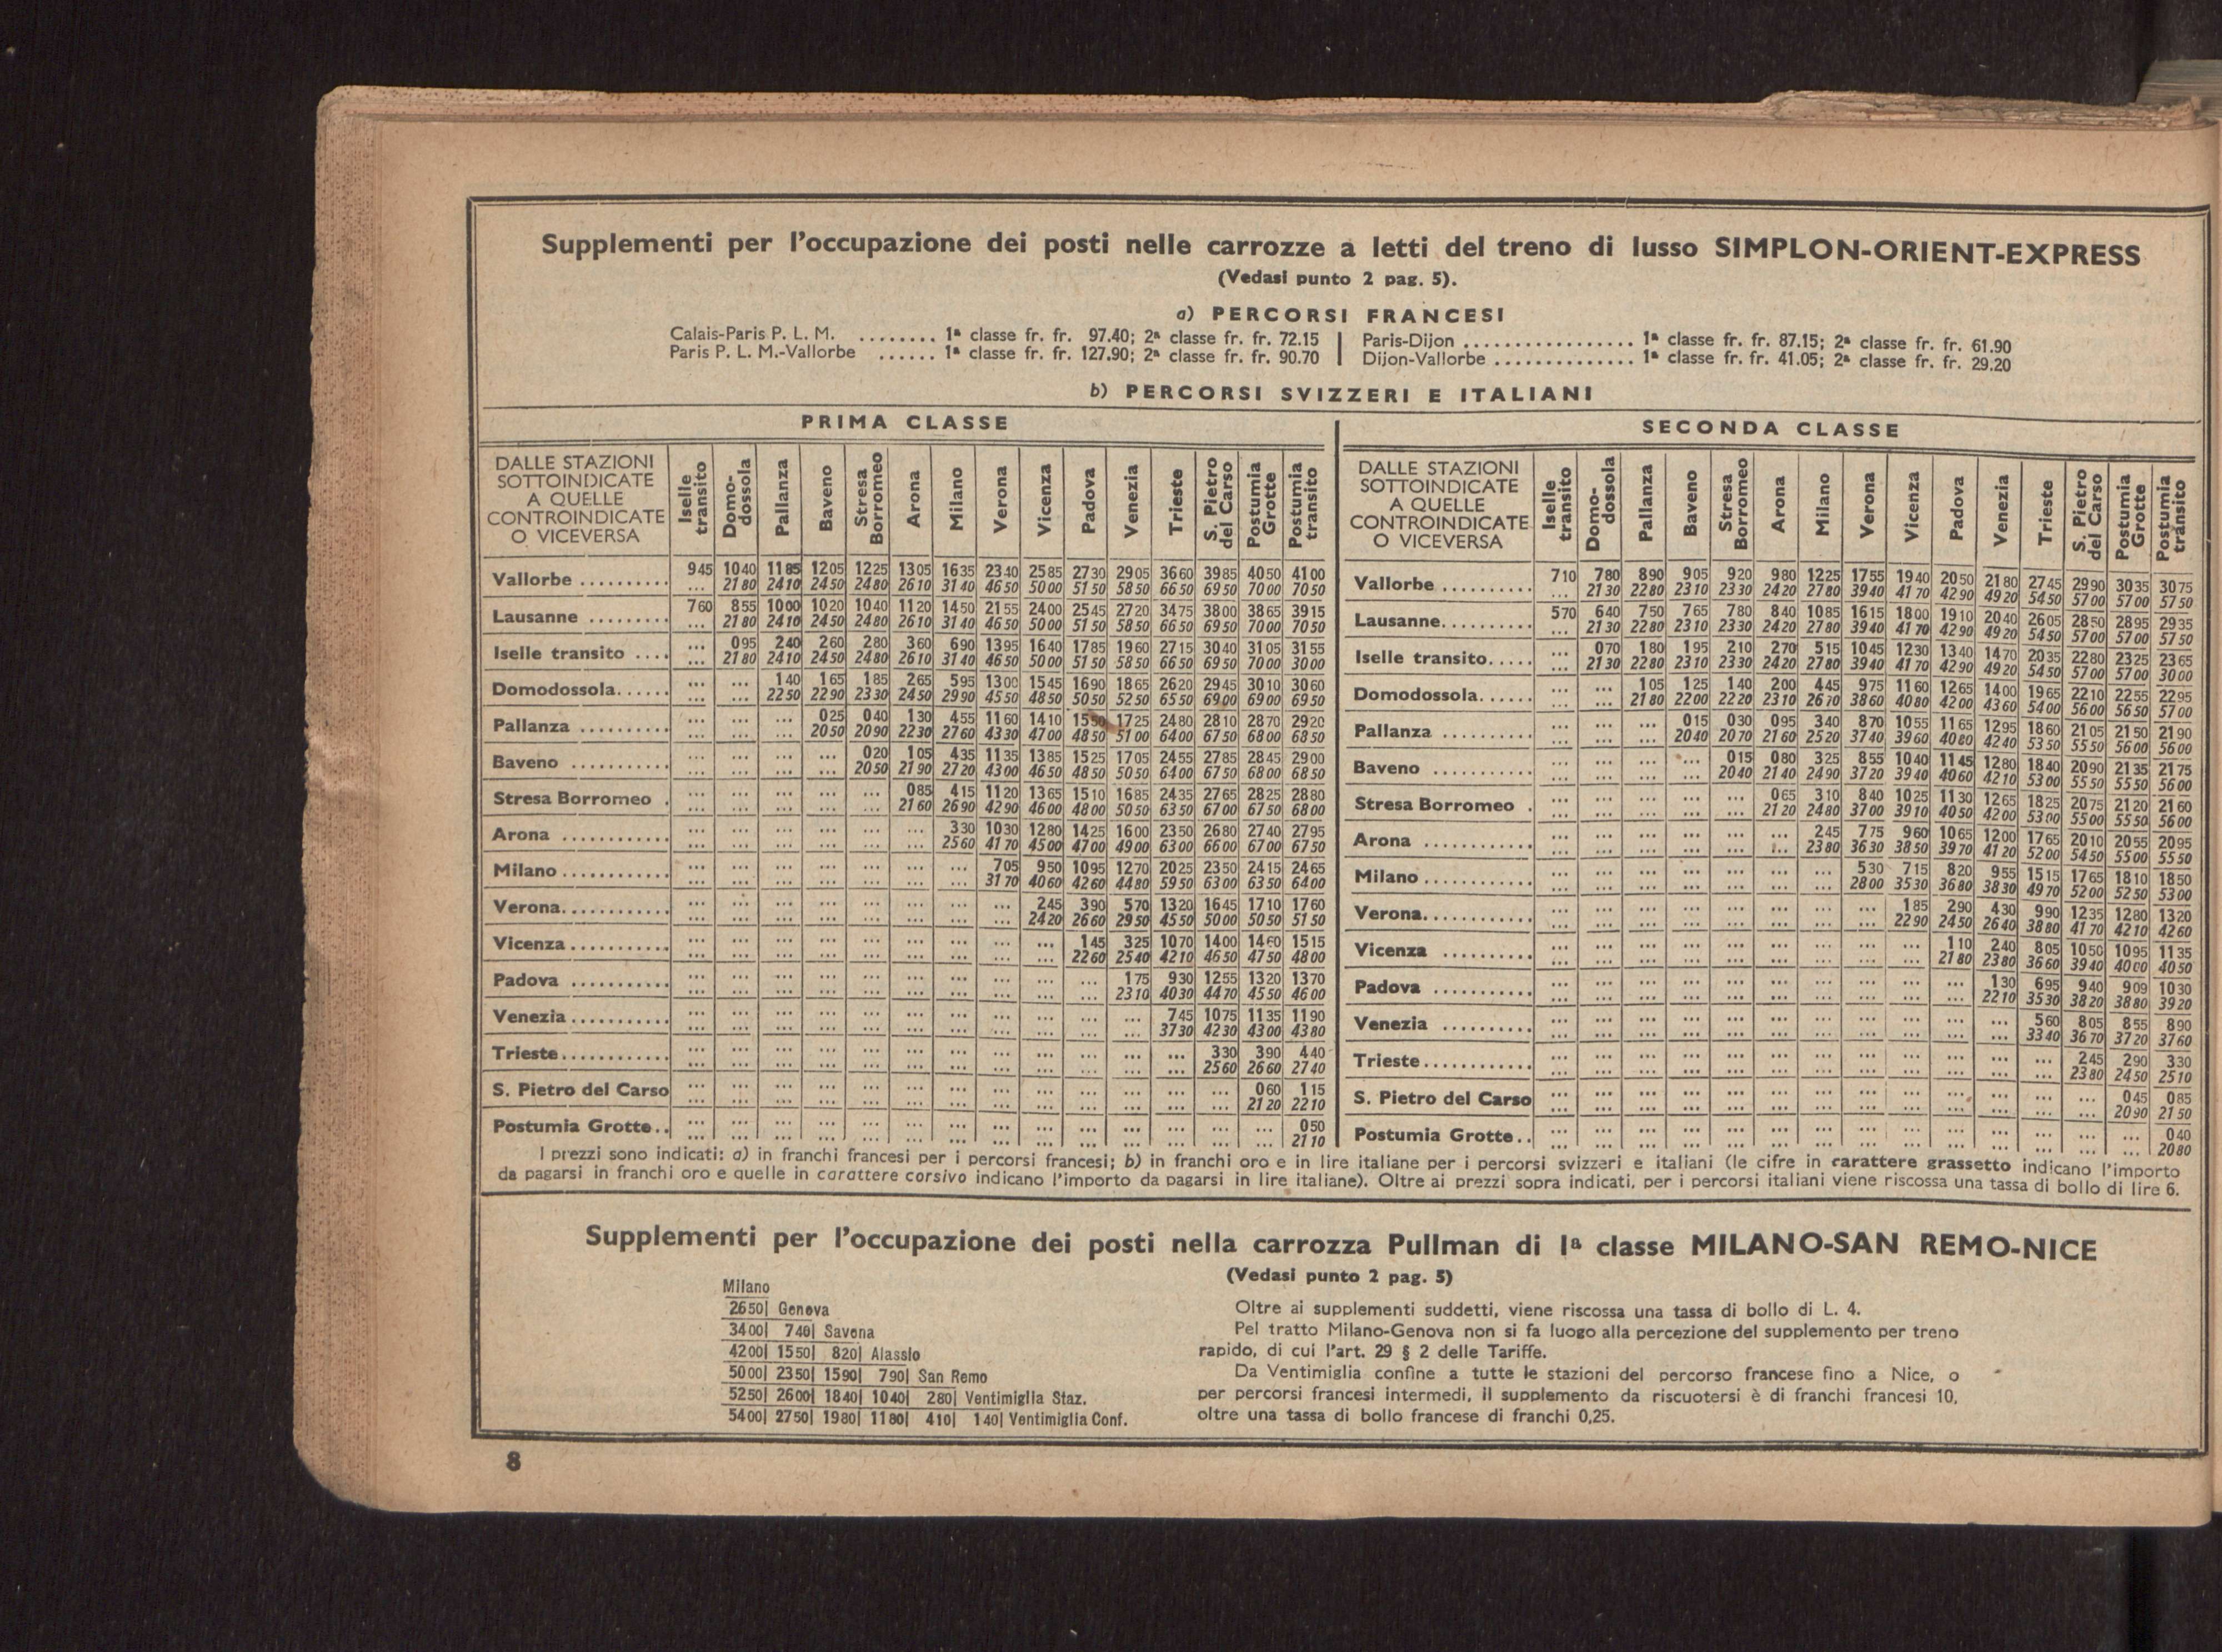 Supplementi per l'occupazione dei posti nelle carrozze a letti del treno di lusso SIMPLON-ORIENT-EXPRESS
(Vedasi punto 2 pag. 5).
a) PERCORSI FRANCESI
Calais-Paris P. L. M. ........ 1ª classe fr. fr. 97.40; 2ª classe fr. fr. 72.15 | Paris-Dijon ................ 1ª classe fr. fr. 87.15; 2ª classe fr. fr. 61.90
Paris P. L. M.-Vallorbe ...... 1ª classe fr. fr. 127.90; 2ª classe fr. fr. 90.70 | Dijon-Vallorbe ............. 1ª classe fr. fr. 41.05; 2ª classe fr. fr. 29.20
b) PERCORSI SVIZZERI E ITALIANI
PRIMA CLASSE
DALLE STAZIONI SOTTOINDICATE A QUELLE CONTROINDICATE O VICEVERSA | Iselle transito | Domodossola | Pallanza | Baveno | Stresa Borromeo | Arona | Milano | Verona | Vicenza | Padova | Venezia | Trieste | S. Pietro del Carso | Postumia Grotte | Postumia transito
Vallorbe .......... 945 1040 1185 1205 1225 1305 1635 2340 2585 2730 2905 3660 3985 4050 4100
... 2180 2410 2450 2480 2610 3140 4650 5000 5150 5850 6650 6950 7000 7050
Lausanne ......... 760 855 1000 1020 1040 1120 1450 2155 2400 2545 2720 3475 3800 3865 3915
... 2180 2410 2450 2480 2610 3140 4650 5000 5150 5850 6650 6950 7000 7050
Iselle transito .... ... 095 240 260 280 360 690 1395 1640 1785 1960 2715 3040 3105 3155
... 2180 2410 2450 2480 2610 3140 4650 5000 5150 5850 6650 6950 7000 3000
Domodossola...... ... ... 140 165 185 265 595 1300 1545 1690 1865 2620 2945 3010 3060
... ... 2250 2290 2330 2450 2990 4550 4850 5050 5250 6550 6900 6900 6950
Pallanza .......... ... ... ... 025 040 130 455 1160 1410 1550 1725 2480 2810 2870 2920
... ... ... 2050 2090 2230 2760 4330 4700 4850 5100 6400 6750 6800 6850
Baveno ........... ... ... ... ... 020 105 435 1135 1385 1525 1705 2455 2785 2845 2900
... ... ... ... 2050 2190 2720 4300 4650 4850 5050 6400 6750 6800 6850
Stresa Borromeo . ... ... ... ... ... 085 415 1120 1365 1510 1685 2435 2765 2825 2880
... ... ... ... ... 2160 2690 4290 4600 4800 5050 6350 6700 6750 6800
Arona ........... ... ... ... ... ... ... 330 1030 1280 1425 1600 2350 2680 2740 2795
... ... ... ... ... ... 2560 4170 4500 4700 4900 6300 6600 6700 6750
Milano ........... ... ... ... ... ... ... ... 705 950 1095 1270 2025 2350 2415 2465
... ... ... ... ... ... ... 3170 4060 4260 4480 5950 6300 6350 6400
Verona........... ... ... ... ... ... ... ... ... 245 390 570 1320 1645 1710 1760
... ... ... ... ... ... ... ... 2420 2660 2950 4550 5000 5050 5150
Vicenza .......... ... ... ... ... ... ... ... ... ... 145 325 1070 1400 1460 1515
... ... ... ... ... ... ... ... ... 2260 2540 4210 4650 4750 4800
Padova ........... ... ... ... ... ... ... ... ... ... ... 175 930 1255 1320 1370
... ... ... ... ... ... ... ... ... ... 2310 4030 4470 4550 4600
Venezia........... ... ... ... ... ... ... ... ... ... ... ... 745 1075 1135 1190
... ... ... ... ... ... ... ... ... ... ... 3730 4230 4300 4380
Trieste............ ... ... ... ... ... ... ... ... ... ... ... ... 330 390 440
... ... ... ... ... ... ... ... ... ... ... ... 2560 2660 2740
S. Pietro del Carso ... ... ... ... ... ... ... ... ... ... ... ... ... 060 115
... ... ... ... ... ... ... ... ... ... ... ... ... 2120 2210
Postumia Grotte.. ... ... ... ... ... ... ... ... ... ... ... ... ... ... 050
... ... ... ... ... ... ... ... ... ... ... ... ... ... 2110
SECONDA CLASSE
DALLE STAZIONI SOTTOINDICATE A QUELLE CONTROINDICATE O VICEVERSA | Iselle transito | Domodossola | Pallanza | Baveno | Stresa Borromeo | Arona | Milano | Verona | Vicenza | Padova | Venezia | Trieste | S. Pietro del Carso | Postumia Grotte | Postumia transito
Vallorbe .......... 710 780 890 905 920 980 1225 1755 1940 2050 2180 2745 2990 3035 3075
... 2130 2280 2310 2330 2420 2780 3940 4170 4290 4920 5450 5700 5700 5750
Lausanne.......... 570 640 750 765 780 840 1085 1615 1800 1910 2040 2605 2850 2895 2935
... 2130 2280 2310 2330 2420 2780 3940 4170 4290 4920 5450 5700 5700 5750
Iselle transito..... ... 070 180 195 210 270 515 1045 1230 1340 1470 2035 2280 2325 2365
... 2130 2280 2310 2330 2420 2780 3940 4170 4290 4920 5450 5700 5700 3000
Domodossola...... ... ... 105 125 140 200 445 975 1160 1265 1400 1965 2210 2255 2295
... ... 2180 2200 2220 2310 2670 3860 4080 4200 4360 5400 5600 5650 5700
Pallanza .......... ... ... ... 015 030 095 340 870 1055 1165 1295 1860 2105 2150 2190
... ... ... 2040 2070 2160 2520 3740 3960 4080 4240 5350 5550 5600 5600
Baveno ........... ... ... ... ... 015 080 325 855 1040 1145 1280 1840 2090 2135 2175
... ... ... ... 2040 2140 2490 3720 3940 4060 4210 5300 5550 5550 5600
Stresa Borromeo . ... ... ... ... ... 065 310 840 1025 1130 1265 1825 2075 2120 2160
... ... ... ... ... 2120 2480 3700 3910 4050 4200 5300 5500 5550 5600
Arona ............ ... ... ... ... ... ... 245 775 960 1065 1200 1765 2010 2055 2095
... ... ... ... ... ... 2380 3630 3850 3970 4120 5200 5450 5500 5550
Milano ............ ... ... ... ... ... ... ... 530 715 820 955 1515 1765 1810 1850
... ... ... ... ... ... ... 2800 3530 3680 3830 4970 5200 5250 5300
Verona............ ... ... ... ... ... ... ... ... 185 290 430 990 1235 1280 1320
... ... ... ... ... ... ... ... 2290 2450 2640 3880 4170 4210 4260
Vicenza .......... ... ... ... ... ... ... ... ... ... 110 240 805 1050 1095 1135
... ... ... ... ... ... ... ... ... 2180 2380 3660 3940 4000 4050
Padova ........... ... ... ... ... ... ... ... ... ... ... 130 695 940 909 1030
... ... ... ... ... ... ... ... ... ... 2210 3530 3820 3880 3920
Venezia .......... ... ... ... ... ... ... ... ... ... ... ... 560 805 855 890
... ... ... ... ... ... ... ... ... ... ... 3340 3670 3720 3760
Trieste............ ... ... ... ... ... ... ... ... ... ... ... ... 245 290 330
... ... ... ... ... ... ... ... ... ... ... ... 2380 2450 2510
S. Pietro del Carso ... ... ... ... ... ... ... ... ... ... ... ... ... 045 085
... ... ... ... ... ... ... ... ... ... ... ... ... 2090 2150
Postumia Grotte.. ... ... ... ... ... ... ... ... ... ... ... ... ... ... 040
... ... ... ... ... ... ... ... ... ... ... ... ... ... 2080
I prezzi sono indicati: a) in franchi francesi per i percorsi francesi; b) in franchi oro e in lire italiane per i percorsi svizzeri e italiani (le cifre in carattere grassetto indicano l'importo
da pagarsi in franchi oro e quelle in carattere corsivo indicano l'importo da pagarsi in lire italiane). Oltre ai prezzi sopra indicati, per i percorsi italiani viene riscossa una tassa di bollo di lire 6.
Supplementi per l'occupazione dei posti nella carrozza Pullman di Iª classe MILANO-SAN REMO-NICE
(Vedasi punto 2 pag. 5)
Milano
2650| Genova
3400| 740| Savona
4200| 1550| 820| Alassio
5000| 2350| 1590| 790| San Remo
5250| 2600| 1840| 1040| 280| Ventimiglia Staz.
5400| 2750| 1980| 1180| 410| 140| Ventimiglia Conf.
Oltre ai supplementi suddetti, viene riscossa una tassa di bollo di L. 4.
Pel tratto Milano-Genova non si fa luogo alla percezione del supplemento per treno
rapido, di cui l'art. 29 § 2 delle Tariffe.
Da Ventimiglia confine a tutte le stazioni del percorso francese fino a Nice, o
per percorsi francesi intermedi, il supplemento da riscuotersi è di franchi francesi 10,
oltre una tassa di bollo francese di franchi 0,25.
8